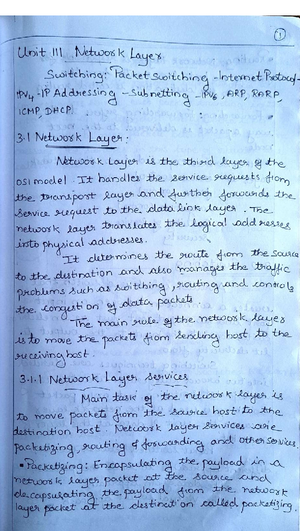 1
Unit III Network Layer
Switching: Packet Switching - Internet Protocol -
IPv4 - IP Addressing - Subnetting - IPv6, ARP, RARP,
ICMP, DHCP
3.1 Network Layer:
Network Layer is the third layer of the
OSI model. It handles the service requests from
the transport layer and further forwards the
service request to the data link layer. The
network layer translates the logical addresses
into physical addresses.
It determines the route from the source
to the distination and also manages the traffic
problems such as switching, routing and controls
the congestion of data packets
The main role of the network layer
is to move the packets from sending host to the
receiving host.
3.1.1 Network Layer Services
Main task of the network layer is
to move packets from the source host to the
destination host. Network layer services are
Packetizing, routing & forwarding and other services.
• Packetizing: Encapsulating the payload in a
network layer packet at the source and
decapsulating the payload from the network
layer packet at the distination called packetizing